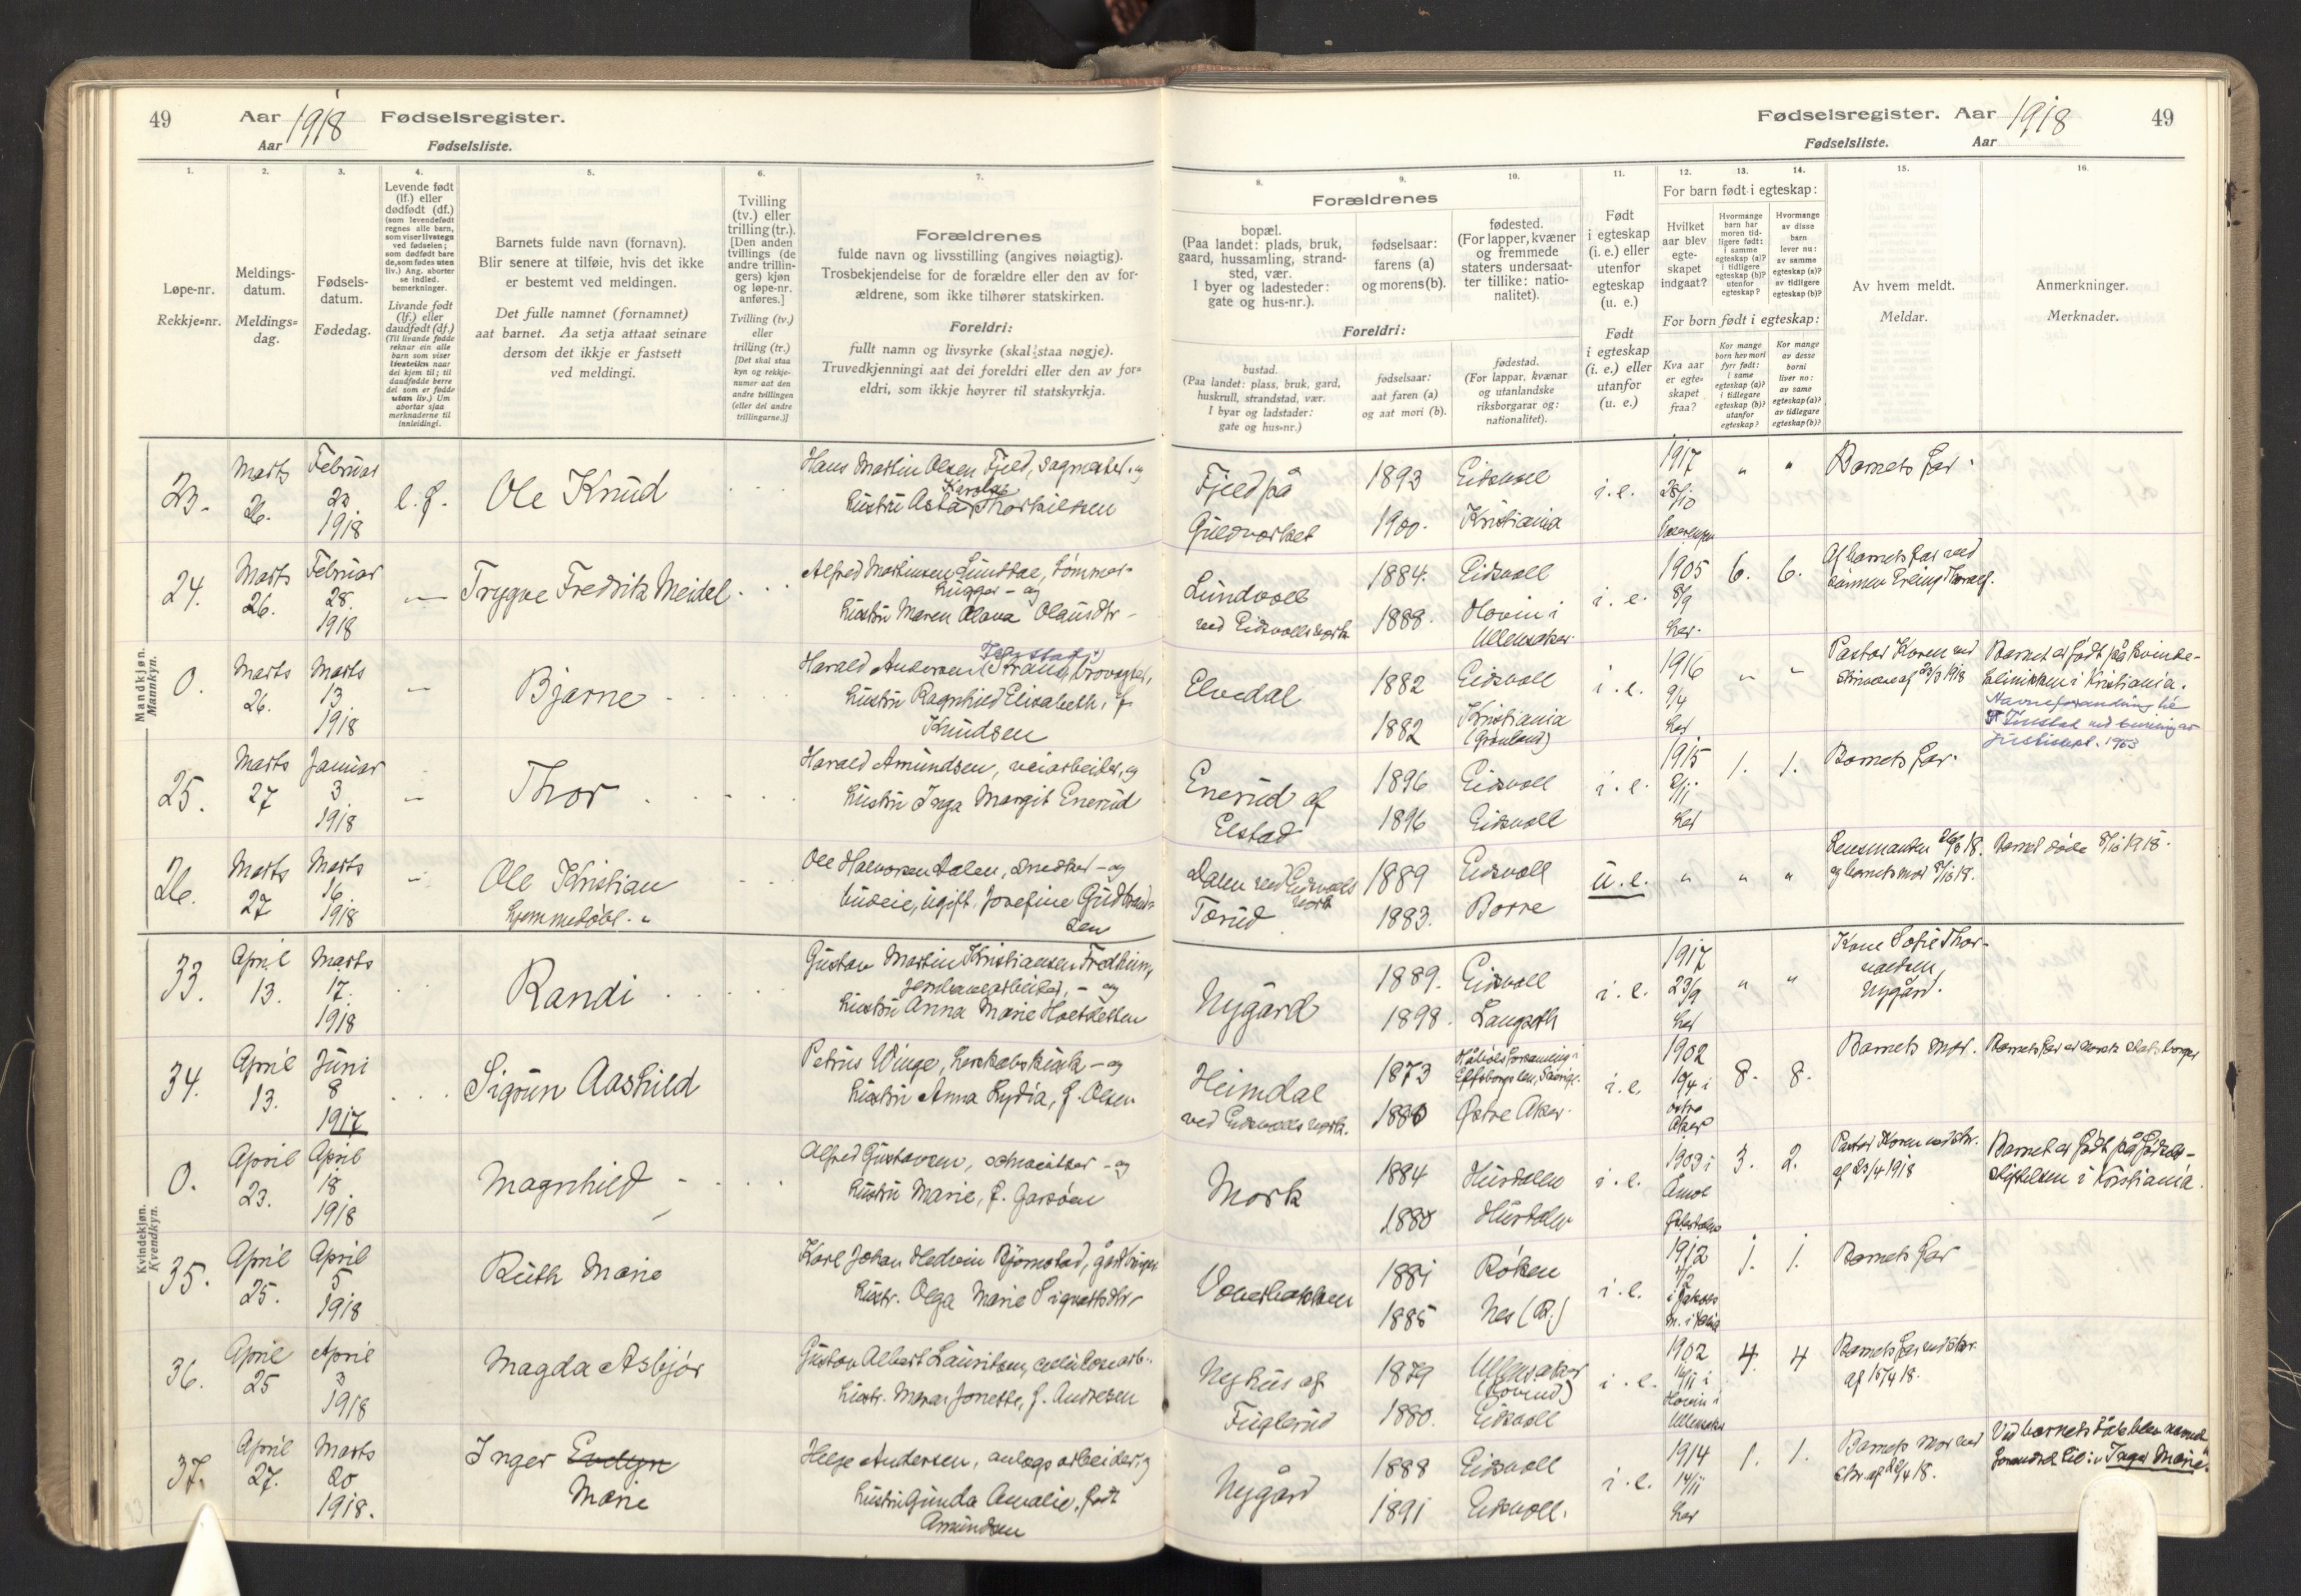 49
Aar 1918
Fødselsregister.
Aar
Fødselsliste.
Fødselsregister. Aar 1918
49
Fødselsliste. Aar
1.
Løpe-nr.
Rekkje-nr.
2.
Meldings-
datum.
Meldings-
dag.
3.
Fødsels-
datum.
Fødedag.
4.
Levende født
(lf.) eller
dødfødt (df.)
(som levendefødt
regnes alle barn,
som viser livstegn
ved fødselen;
som dødfødt bare
de, som fødes uten
liv.) Ang. aborter
se indled.
bemerkninger.
Livande født
(lf.) eller
daudfødt (df.)
(Til livande fødde
reknar ein alle
barn som viser
livsteikn naar
dei kjem til; til
daudfødde berre
dei som er fødde
utan liv.) Um
abortar sjaa
merknaderne til
innleidingi.
5.
Barnets fulde navn (fornavn).
Blir senere at tilføie, hvis det ikke
er bestemt ved meldingen.
Det fulle namnet (fornamnet)
aat barnet. Aa setja attaat seinare
dersom det ikkje er fastsett
ved meldingi.
6.
Tvilling
(tv.) eller
trilling (tr.).
[Den anden
tvillings (de
andre trillin-
gers) kjøn
og løpe-nr.
anføres.]
Tvilling (tv.)
eller
trilling (tr.)
[Det skal staa
kyn og rekkje-
numer aat den
andre tvillingen
(eller dei andre
trillingarne.)]
7.
Forældrenes
fulde navn og livsstilling (angives nøiagtig).
Trosbekjendelse for de forældre eller den av for-
ældrene, som ikke tilhører statskirken.
Foreldri:
fullt namn og livsyrke (skal staa nøgje).
Truvedkjenningi aat dei foreldri eller den av for-
eldri, som ikkje høyrer til statskyrkja.
Forældrenes
8.
bopæl.
(Paa landet: plads, bruk,
gaard, hussamling, strand-
sted, vær.
I byer og ladesteder:
gate og hus-nr.).
9.
fødselsaar:
farens (a)
og morens (b).
10.
fødested.
(For lapper, kvæner
og fremmede
staters undersaat-
ter tillike: natio-
nalitet).
Foreldri:
bustad.
(Paa landet: plass, bruk, gard,
huskrull, strandstad, vær.
I byar og ladstader:
gate og hus-nr.)
fødselsaar:
aat faren (a)
og aat mori (b).
fødestad.
(For lappar, kvænar
og utanlandske
riksborgarar og:
nationalitet).
11.
Født
i egteskap
(i. e.) eller
utenfor
egteskap
(u. e.)
Født
i egteskap
(i. e.) eller
utanfor
(u. e.)
12.
13.
14.
For barn født i egteskap:
Hvilket
aar blev
egte-
skapet
indgaat?
Hvormange
barn har
moren tid-
ligere født:
i samme
egteskap (a)?
i tidligere
egteskap (b)?
utenfor
egteskap?
Hvormange
av disse
barn
lever nu:
av samme
egteskap (a)?
av tidligere
egteskap (b)?
For born født i egteskap:
Kva aar
er egte-
skapet
fraa?
Kor mange
born hev mori
fyrr født:
i same
egteskap (a)?
i tidlegare
egteskap (b)?
utanfor
egteskap?
Kor mange
av desse
borni
liver no:
av same
egteskap (a)?
av tidlegare
egteskap (b)?
15.
Av hvem meldt.
Meldar.
16.
Anmerkninger.
Merknader.
Mandkjøn.
Mannkyn.
23. Marts 26. Februar 23 1918 l.f. Ole Knud
Hans Martin Olsen Fjeld, sagmester, og
Karola
hustru Asta Thorkilsen
Fjeld på
Guldverket
1893 Eidsvoll
1900. Kristiania
i.e. 1917 28/10 " " Barnets far.
24. Marts 26. Februar 28. 1918 — Trygve Fredrik Meidel
Alfred Martinsen Lundbae, tømmer-
hugger - og
hustru Maren Olava Olausdtr -
Lundvoll
ved Eidsvolls verk
1884. Eidsvoll
1888. Hovin i
Ullensaker.
i. e. 1905 8/9 her. 6. 6. Af barnets far ved
0. Marts 26. Marts 13 1918 — Bjarne
Harald Andersen
hustru Ragnhild Elisabeth, f.
Knudsen
Elvedal
1882 Eidsvoll
1882 Kristiania
(Grønland)
i. e. 1916 9/4 her " " Pastor Koren ved
skrivelse af 23/3 1918
Barnet er født på kvinde-
klinikken i Kristiania.
Navneforandring til
Tunstad ved bevilling av
Justisdept. 1953
25. Marts 27 Januar 3 1918 — Thor
Harald Amundsen, veiarbeider, og
hustru Inga Margit Enerud
Enerud af
Elstad
1896 Eidsvoll
1896 Eidsvoll
i. e. 1915 2/11 her 1. 1. Barnets far.
26. Marts 27 Marts 16 1918 — Ole Kristian
hjemmedøbt.
Ole Halvorsen Dalen, snedker - og
budeie, ugift, Josefine Gudbrand-
sen
Dalen ved Eidsvolls
verk
Tærud
1889 Eidsvoll
1883. Borre
u. e. " " " Lensmanden 26/3 18.
og barnets mor 8/10 18.
Barnet døde 8/10 1918.
Kvindekjøn.
Kvendkyn.
33. April 13. Marts 17. 1918 Randi
Gustav Martin Kristiansen Fredheim,
jernbanearbeider, - og
hustru Anna Marie Holtketten
Nygård
1889. Eidsvoll
1898. Langseth
i. e. 1917 23/9 her " " Kone Sofie Thor-
valdsen,
Nygård.
34. April 13. Juni 8 1917 Sigrun Aashild
Petrus Winge, herskabskusk - og
hustru Anna Lydia, f. Olsen
Heimdal
ved Eidsvolls verk.
1873
Elfsborgs len, Sverige.
1880 Østre Aker.
i. e. 1902 19/4 i østre Aker 8. 8. Barnets mor. Barnets far er norsk statsborger
0. April 23. April 18 1918 Magnhild
Alfred Gustavsen, - og
hustru Marie, f. Garsøen
Mork
1884 Hurdalen
1880 Hurdalen
i. e. 1903 i 3. 2. Pastor Koren ved skr.
af 23/4 1918
Barnet er født på Fødsels-
stiftelsen i Kristiania.
35. April 25. April 5 1918 Ruth Marie
Karl Johan Hedvin Bjørnstad, gårdbruger
hustr. Olga Marie Sigvartsdtr.
1881 Røken
1885 Nes (R.)
i. e. 1912 1. 1. Barnets far
36. April 25 April 3 1918 Magda Asbjør
Gustav Albert Lauritsen, cellulosearb.,
hustr. Maren Jonette, f. Andresen
Nyhus af
Fuglerud
1879 Ullensaker
(Hovind)
1880. Eidsvoll
i. e. 1902 16/11 i Hovin i Ullensaker 4. 4 Barnets far ved skr.
af 15/4 18.
37. April 27. Marts 20 1918. Inger Evelyn
Marie
Helge Andersen, anlægsarbeider, og
hustru Gunda Amalie, født
Amundsen
Nygård
1888 Eidsvoll
1891 Eidsvoll.
i. e. 1914 14/11 her 1. 1. Barnets mor ved
skr. af 26/4 18.
Ved barnets dåb blev navnet
forandret til: "Inger Marie."